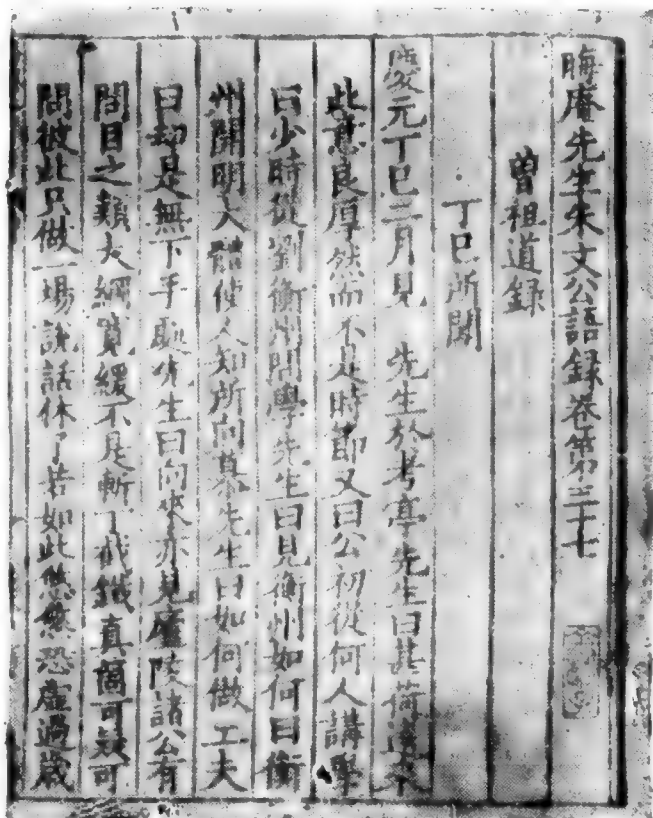 晦庵先生朱文公語録卷第三十七
曾祖道録
丁巳所聞
慶元丁巳三月見　先生於考亭先生曰甚荷遠來
此意良厚然而不是時節又曰公初從何人講學
曰少時從劉衡州問學先生曰見衡州如何曰衡
州開明大體使人知所向慕先生曰如何做工夫
曰却是無下手處先生曰向來亦見廬陵諸公有
問目之類大綱寛緩不是斬丁截鐵真箇可疑可
問彼此只做一場說話休了若如此悠悠恐虛過歳